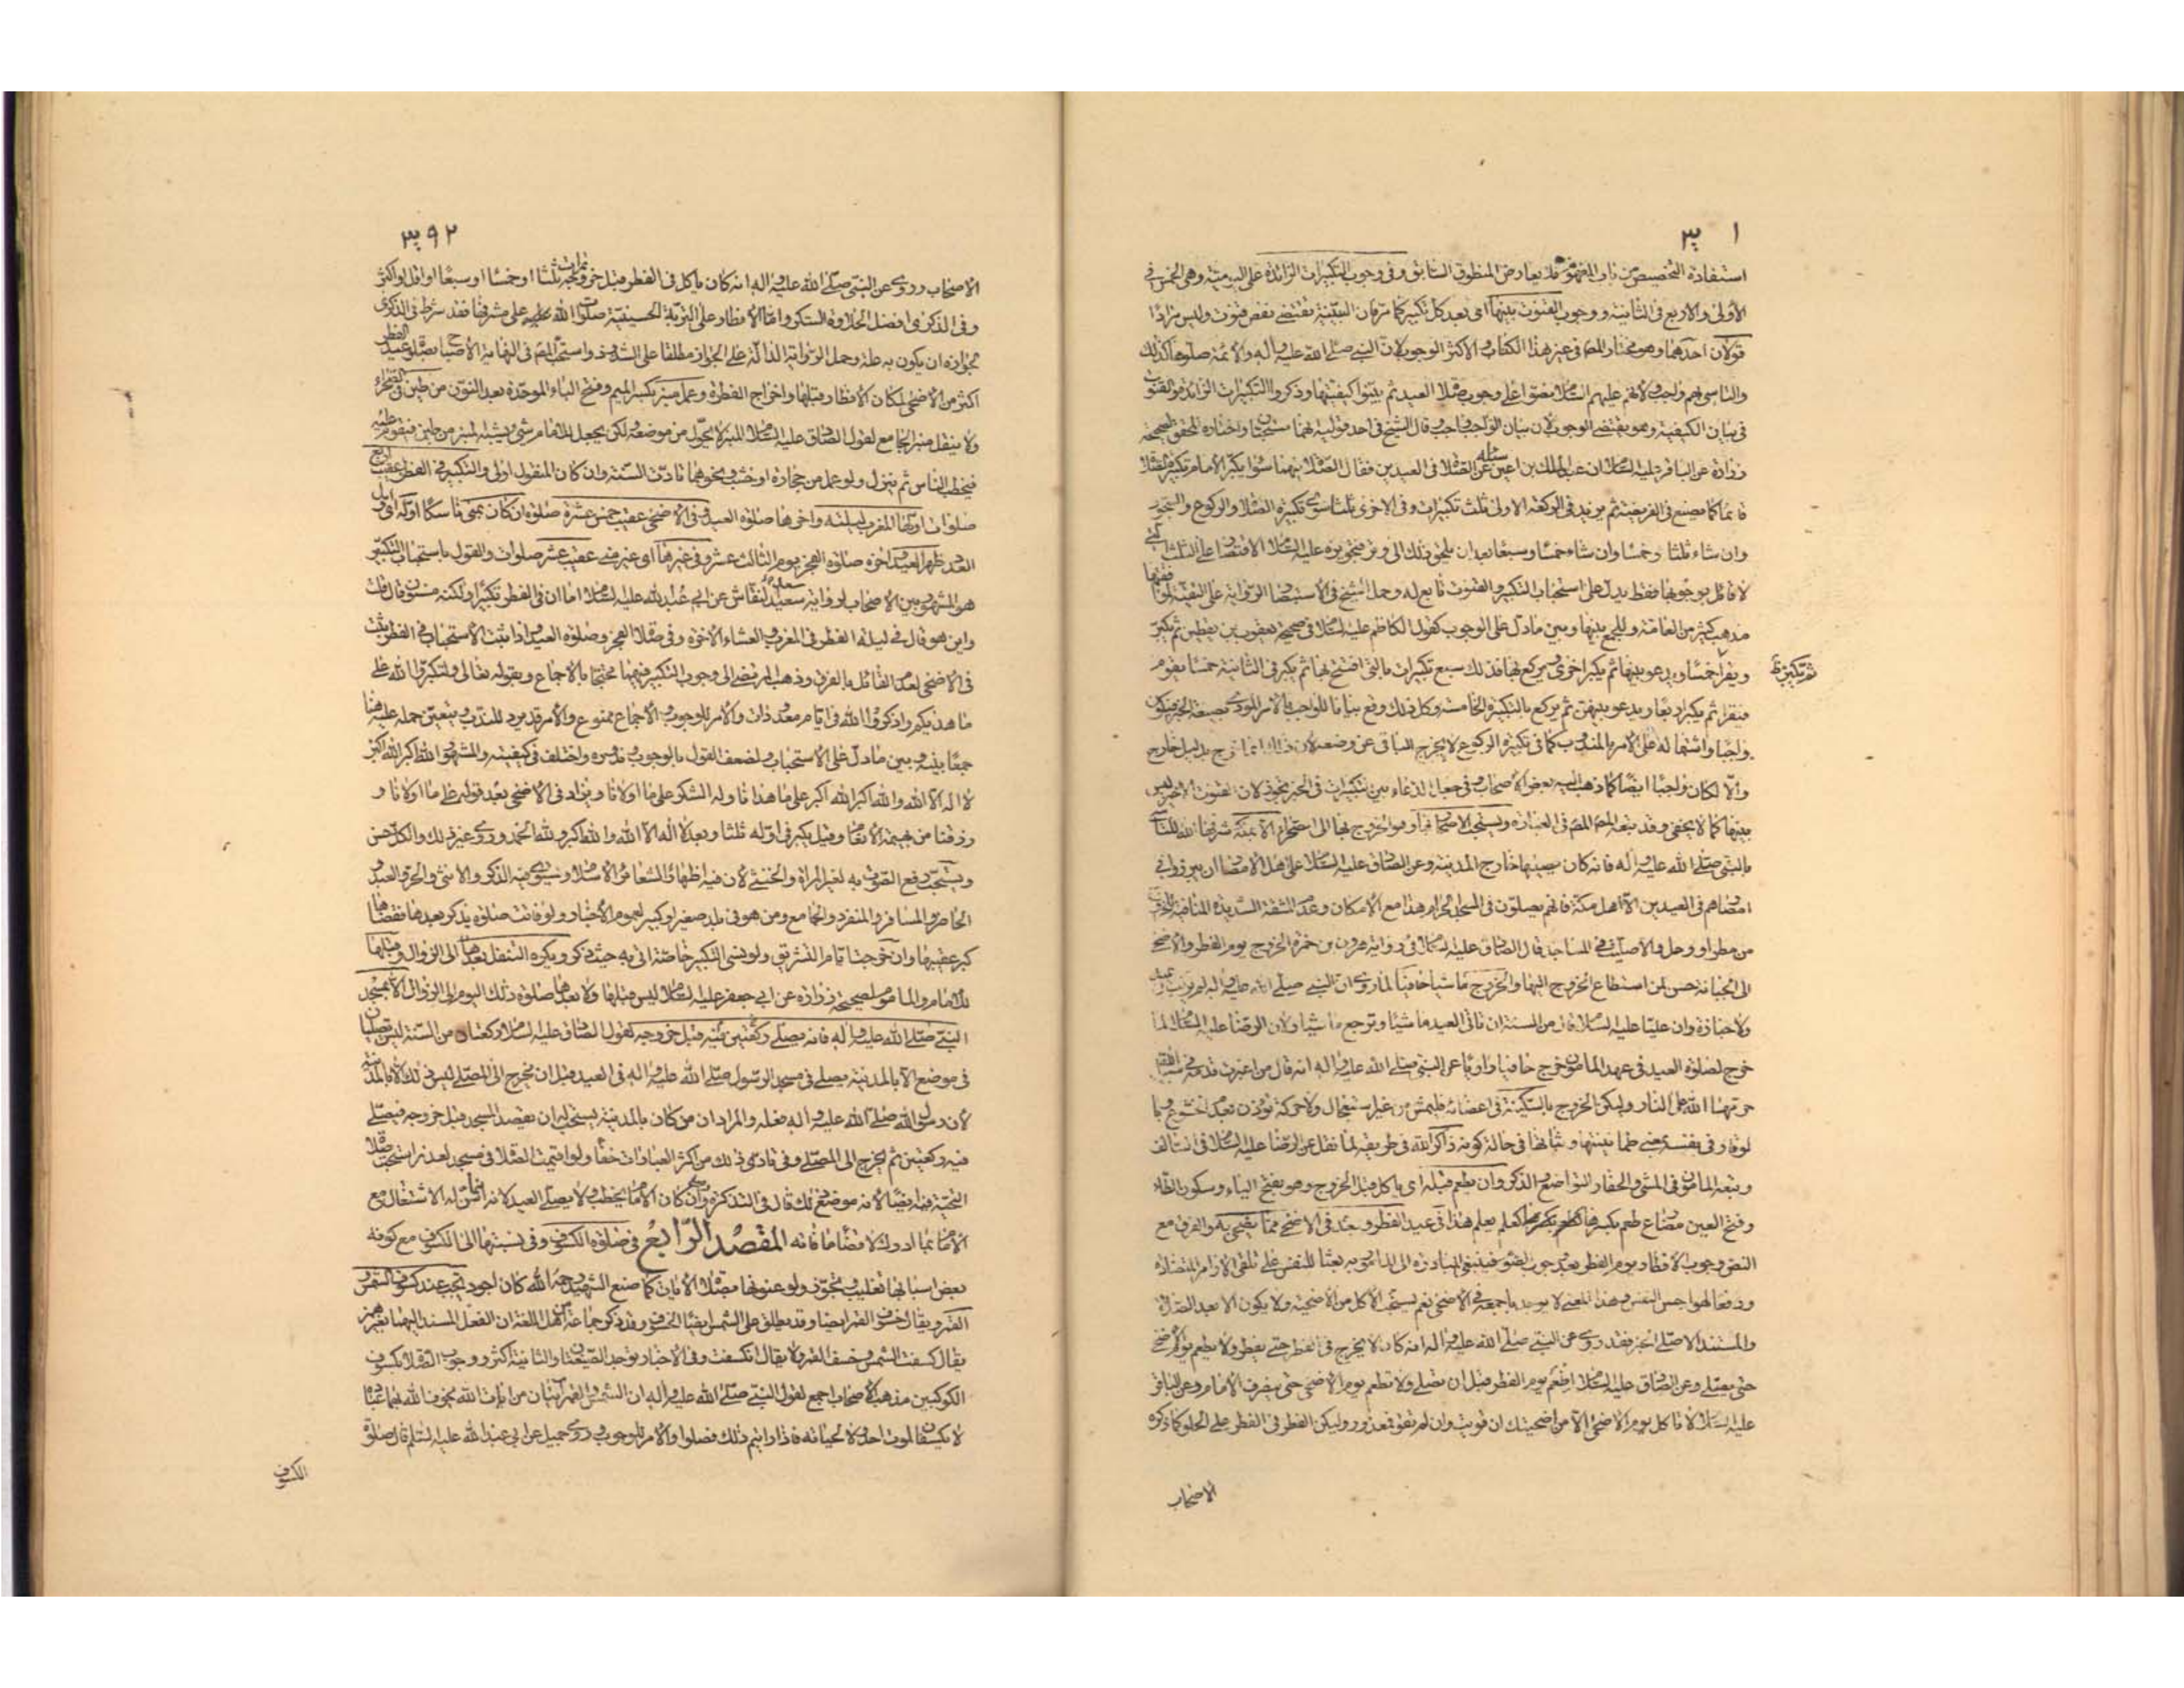 ١ ٣
استفادة التخصيص من باب المفهوم فلا يعارض المنطوق السابق وفي وجوب التكبيرات الزائدة على اليومية وهي الخمس في
الأولى والأربع في الثانية ووجوب القنوت بينها أي بعد كل تكبيرة كما مر فان البينية تقتضي نقص قنوت وليس مرادا
قولان أحدهما وهو مختار المصـ في غير هذا الكتاب والأكثر الوجوب لان النبي صلى الله عليه وآله والأئمة صلوها كذلك
والتاسي بهم واجب ولأنهم عليهم السلام نصوا على وجوب صلاة العيد ثم بينوا كيفيتها وذكروا التكبيرات الزائدة والقنوت
في بيان الكيفية وهو يقتضي الوجوب لان بيان الواجب واجب وقال الشيخ في أحد قوليه انهما مستحبان واختاره المحقق لصحيحة
زرارة عن الباقر عليه السلام ان عبد الملك بن أعين سئله عن الصلاة في العيدين فقال الصلاة فيهما سواء يكبر الامام تكبيرة الصلاة
قائما كما يصنع في الفريضة ثم يزيد في الركعة الأولى ثلث تكبيرات وفي الأخرى ثلثا سوى تكبيرة الصلاة والركوع والسجود
وان شاء ثلثا وخمسا وان شاء خمسا وسبعا بعد ان يلحق ذلك إلى وتر فتجويزه عليه السلام الاقتصار على الثلث
لا قائل بوجوبها فقط يدل على استحباب التكبير والقنوت تابع له وحمل الشيخ في الاستبصار الرواية على التقية لموافقتها
مذهب كثير من العامة وللجمع بينها وبين ما دل على الوجوب كقول الكاظم عليه السلام في صحيحة يعقوب بن يقطين ثم يكبر
ثم تكبيرظ
ويقرأ خمسا ويدعو بينها ثم يكبر أخرى ويركع بها فذلك سبع تكبيرات بالتي افتتح بها ثم يكبر في الثانية خمسا يقوم
فيقرأ ثم يكبر أربعا ويدعو بينهن ثم يركع بالتكبيرة الخامسة وكل ذلك وقع بيانا للواجب بالأمر المودى بصيغة الخبر فيكون
واجبا واشتماله على الأمر بالمندوب كما في تكبيرة الركوع لا يخرج الباقي عن وضعه لان ذلك انما خرج بدليل خارج
والا لكان واجبا أيضا كما ذهب إليه بعض الأصحاب وفي جعل الدعاء بين تكبيرات في الخبر تجوز لان القنوت الأخير ليس
بينها كما لا يخفى وقد تبعه المصـ في العبارة ويستحب الاصحار بها وهو الخروج بها إلى الصحراء الا بمكة شرفها الله للتاسي
بالنبي صلى الله عليه وآله فإنه كان يصليها خارج المدينة وعن الصادق عليه السلام على أهل الأمصار ان يبرزوا في
أمصارهم في العيدين الا أهل مكة فإنهم يصلون في المسجد الحرام هذا مع الامكان وعدم المشقة الشديدة المنافية للتكليف
من مطر أو وحل والا صليت في المساجد قال الصادق عليه السلام في رواية هرون بن حمزة الخروج يوم الفطر والأضحى
إلى الجبانة حسن لمن استطاع الخروج إليها والخروج ماشيا حافيا لما روى ان النبي صلى الله عليه وآله لم يركب في عيد
ولا جنازة وان عليا عليه السلام قال من السنة ان تأتي العيد ماشيا وترجع ماشيا ولان الرضا عليه السلام لما
خرج لصلوة العيد في عهد المأمون خرج حافيا وأوما عن النبي صلى الله عليه وآله انه قال من اغبرت قدماه في سبيل الله
حرمهما الله على النار وليكن الخروج بالسكينة في أعضائه فليمش من غير استعجال ولا حركة تؤذن بعدم الخشوع وبا
لوقار في نفسه يعني طمأنينتها وثباتها في حالة كونه ذاكرا لله في طريقه لما نقل عن الرضا عليه السلام في السالف
وتبعه المأمون في المشي والحفاء والتواضع والذكر وان يطعم قبله أي يأكل قبل الخروج وهو بفتح الياء وسكون الطاء
وفتح العين مضارع طعم بكسرها كعلم يعلم هذا في عيد الفطر وبعده في الأضحى مما يضحي به والفرق مع
النص وجوب الافطار يوم الفطر بعد وجوب الصوم فينبغي المبادرة إلى المأمور به بعثا للنفس على تلقى الأوامر للنضادة
ودفعا لهواجس النفس وهذا المعنى لا يوجد باجمعه في الأضحى نعم يستحب الأكل من الأضحية ولا يكون الا بعد الصلاة
والمستند الأصلي الخبر فقد روى عن النبي صلى الله عليه وآله انه كان لا يخرج في الفطر حتى يفطر ولا يطعم يوم الأضحى
حتى يصلي وعن الصادق عليه السلام اطعم يوم الفطر قبل ان تصلي ولا تطعم يوم الأضحى حتى ينصرف الامام وعن الباقر
عليه السلام لا تأكل يوم الأضحى الا من أضحيتك ان قويت وان لم تقو فمعذور وليكن الفطر في الفطر على الحلو كما ذكره
الأصحاب
٣٩٢
الأصحاب وروى عن النبي صلى الله عليه وآله انه كان يأكل في الفطر قبل خروجه تمرات ثلثا أو خمسا أو سبعا أو أقل أو أكثر
وفي الذكرى أفضل الحلاوة السكر واما الافطار على التربة الحسينية صلوات الله على مشرفها فقد شرط في الذكرى
لجوازه ان يكون به علة وحمل الرواية الدالة على الجواز مطلقا على الشذوذ واستحب المصـ في النهاية الاصباح بصلوة عيد الفطر
أكثر من الأضحى لمكان الافطار قبلها واخراج الفطرة وعمل منبر بكسر الميم وفتح الباء الموحدة بعد النون من طين في الصحراء
ولا ينقل منبر الجامع لقول الصادق عليه السلام المنبر لا يحول من موضعه ولكن يجعل للامام شئ يشبه المنبر من طين فيقوم عليه
فيخطب الناس ثم ينزل ولو عمل من حجارة أو خشب ونحوهما تأدت السنة وان كان المنقول أولى والتكبير في الفطر عقيب أربع
صلوات أولها المغرب ليلته وآخرها صلوة العيد وفي الأضحى عقيب خمس عشرة صلوة ان كان بمنى ناسكا أولها
الغد ظهر العيد آخره صلوة الفجر يوم الثالث عشر وفي غيرها أو غيره فيه عقيب عشر صلوات والقول باستحباب التكبير
هو المشهور بين الأصحاب لرواية سعيد النقاش عن أبي عبد الله عليه السلام اما ان في الفطر تكبيرا ولكنه مسنون قال قلت
وأين هو قال في ليلة الفطر في المغرب والعشاء الآخرة وفي صلاة الفجر وصلوة العيد وإذا ثبت الاستحباب في الفطر يثبت
في الأضحى لعدم القائل بالفرق وذهب المرتضى إلى وجوب التكبير فيهما محتجا بالاجماع وبقوله تعالى ولتكبروا الله على
ما هديكم واذكروا الله في أيام معدودات والأمر للوجوب والاجماع ممنوع والأمر قد يرد للندب ويتعين حمله عليه هنا
جمعا بينه وبين ما دل على الاستحباب ولضعف القول بالوجوب وندوره واختلف في كيفيته والمشهور الله أكبر الله أكبر
لا إله إلا الله والله أكبر الله أكبر على ما هدانا وله الشكر على ما أولانا ويزاد في الأضحى بعد قوله على ما أولانا و
رزقنا من بهيمة الأنعام وقيل يكبر في أوله ثلثا وبعده لا إله إلا الله والله أكبر ولله الحمد وروى غير ذلك والكل حسن
ويستحب رفع الصوت به لغير المرأة والخنثى لان فيه اظهارا لشعائر الاسلام ويستوي فيه الذكر والأنثى والحر والعبد
الحاضر والمسافر والمنفرد والجامع ومن هو في بلد صغير أو كبير لعموم الأخبار ولو فاتت صلوة يذكر بعدها فقضاها
كبر عقيبها وان خرجت أيام التشريق ولو نسى التكبير خاصة أتى به حيث ذكر ويكره التنفل بعدها إلى الزوال وقبلها
للامام والمأموم لصحيحة زرارة عن أبي جعفر عليه السلام ليس قبلها ولا بعدها صلوة ذلك اليوم إلى الزوال الا بمسجد
النبي صلى الله عليه وآله فإنه يصلي ركعتين فيه قبل خروجه لقول الصادق عليه السلام ركعتان من السنة ليس تصليان
في موضع الا بالمدينة يصلى في مسجد الرسول صلى الله عليه وآله في العيد قبل ان يخرج إلى المصلى ليس ذلك الا بالمدينة
لان رسول الله صلى الله عليه وآله فعله والمراد ان من كان بالمدينة يستحب له ان يقصد المسجد قبل خروجه فيصلي
فيه ركعتين ثم يخرج إلى المصلى وفي تأدى ذلك من أكثر العبارات خفاء ولو أقيمت الصلاة في مسجد لعذر استحب صلاة
التحية فيه أيضا لأنه موضع ذلك قال في التذكرة وان كان الامام يخطب ولا يصلي العيد لأنه انما سن له الاشتغال مع
الامام بما أدرك لا قضاء ما فاته المقصد الرابع في صلوة الكسوف وفي نسبتها إلى الكسوف مع كونه
بعض أسبابها تغليب وتجوز ولو عنونها بصلاة الآيات كما صنع الشهيد رحمه الله كان أجود تجب عند كسوف الشمس و
القمر ويقال خسوف القمر أيضا وقد يطلق على الشمس أيضا الخسوف وقد ذكر جماعة من أهل اللغة ان الفعل المسند إليهما بغير همز
يقال كسفت الشمس وخسف القمر ولا يقال انكسفت وفي الأخبار توجد الصيغتان والثانية أكثر ووجوب الصلاة بكسوف
الكوكبين مذهب الأصحاب اجمع لقول النبي صلى الله عليه وآله ان الشمس والقمر آيتان من آيات الله يخوف الله بهما عباده
لا يكسفان لموت أحد ولا لحياته فإذا رأيتم ذلك فصلوا والأمر للوجوب وروى جميل عن أبي عبد الله عليه السلم قال صلوة
الكسوف